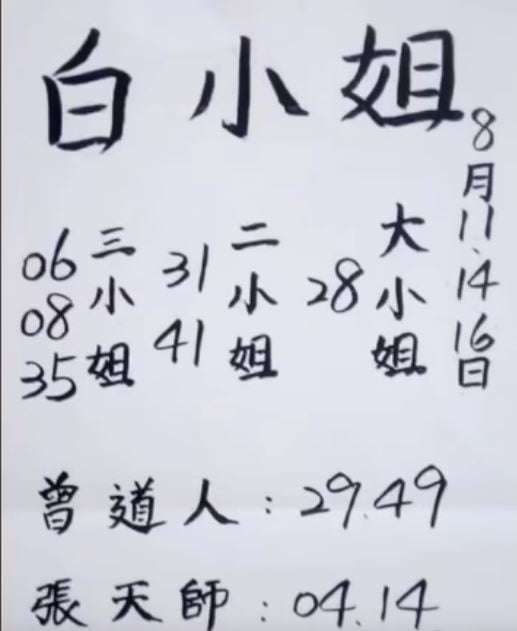 白小姐
8月11、14 16日
大小姐
28
二小姐
31
41
三小姐
06
08
35
曾道人：29.49
張天師：04.14